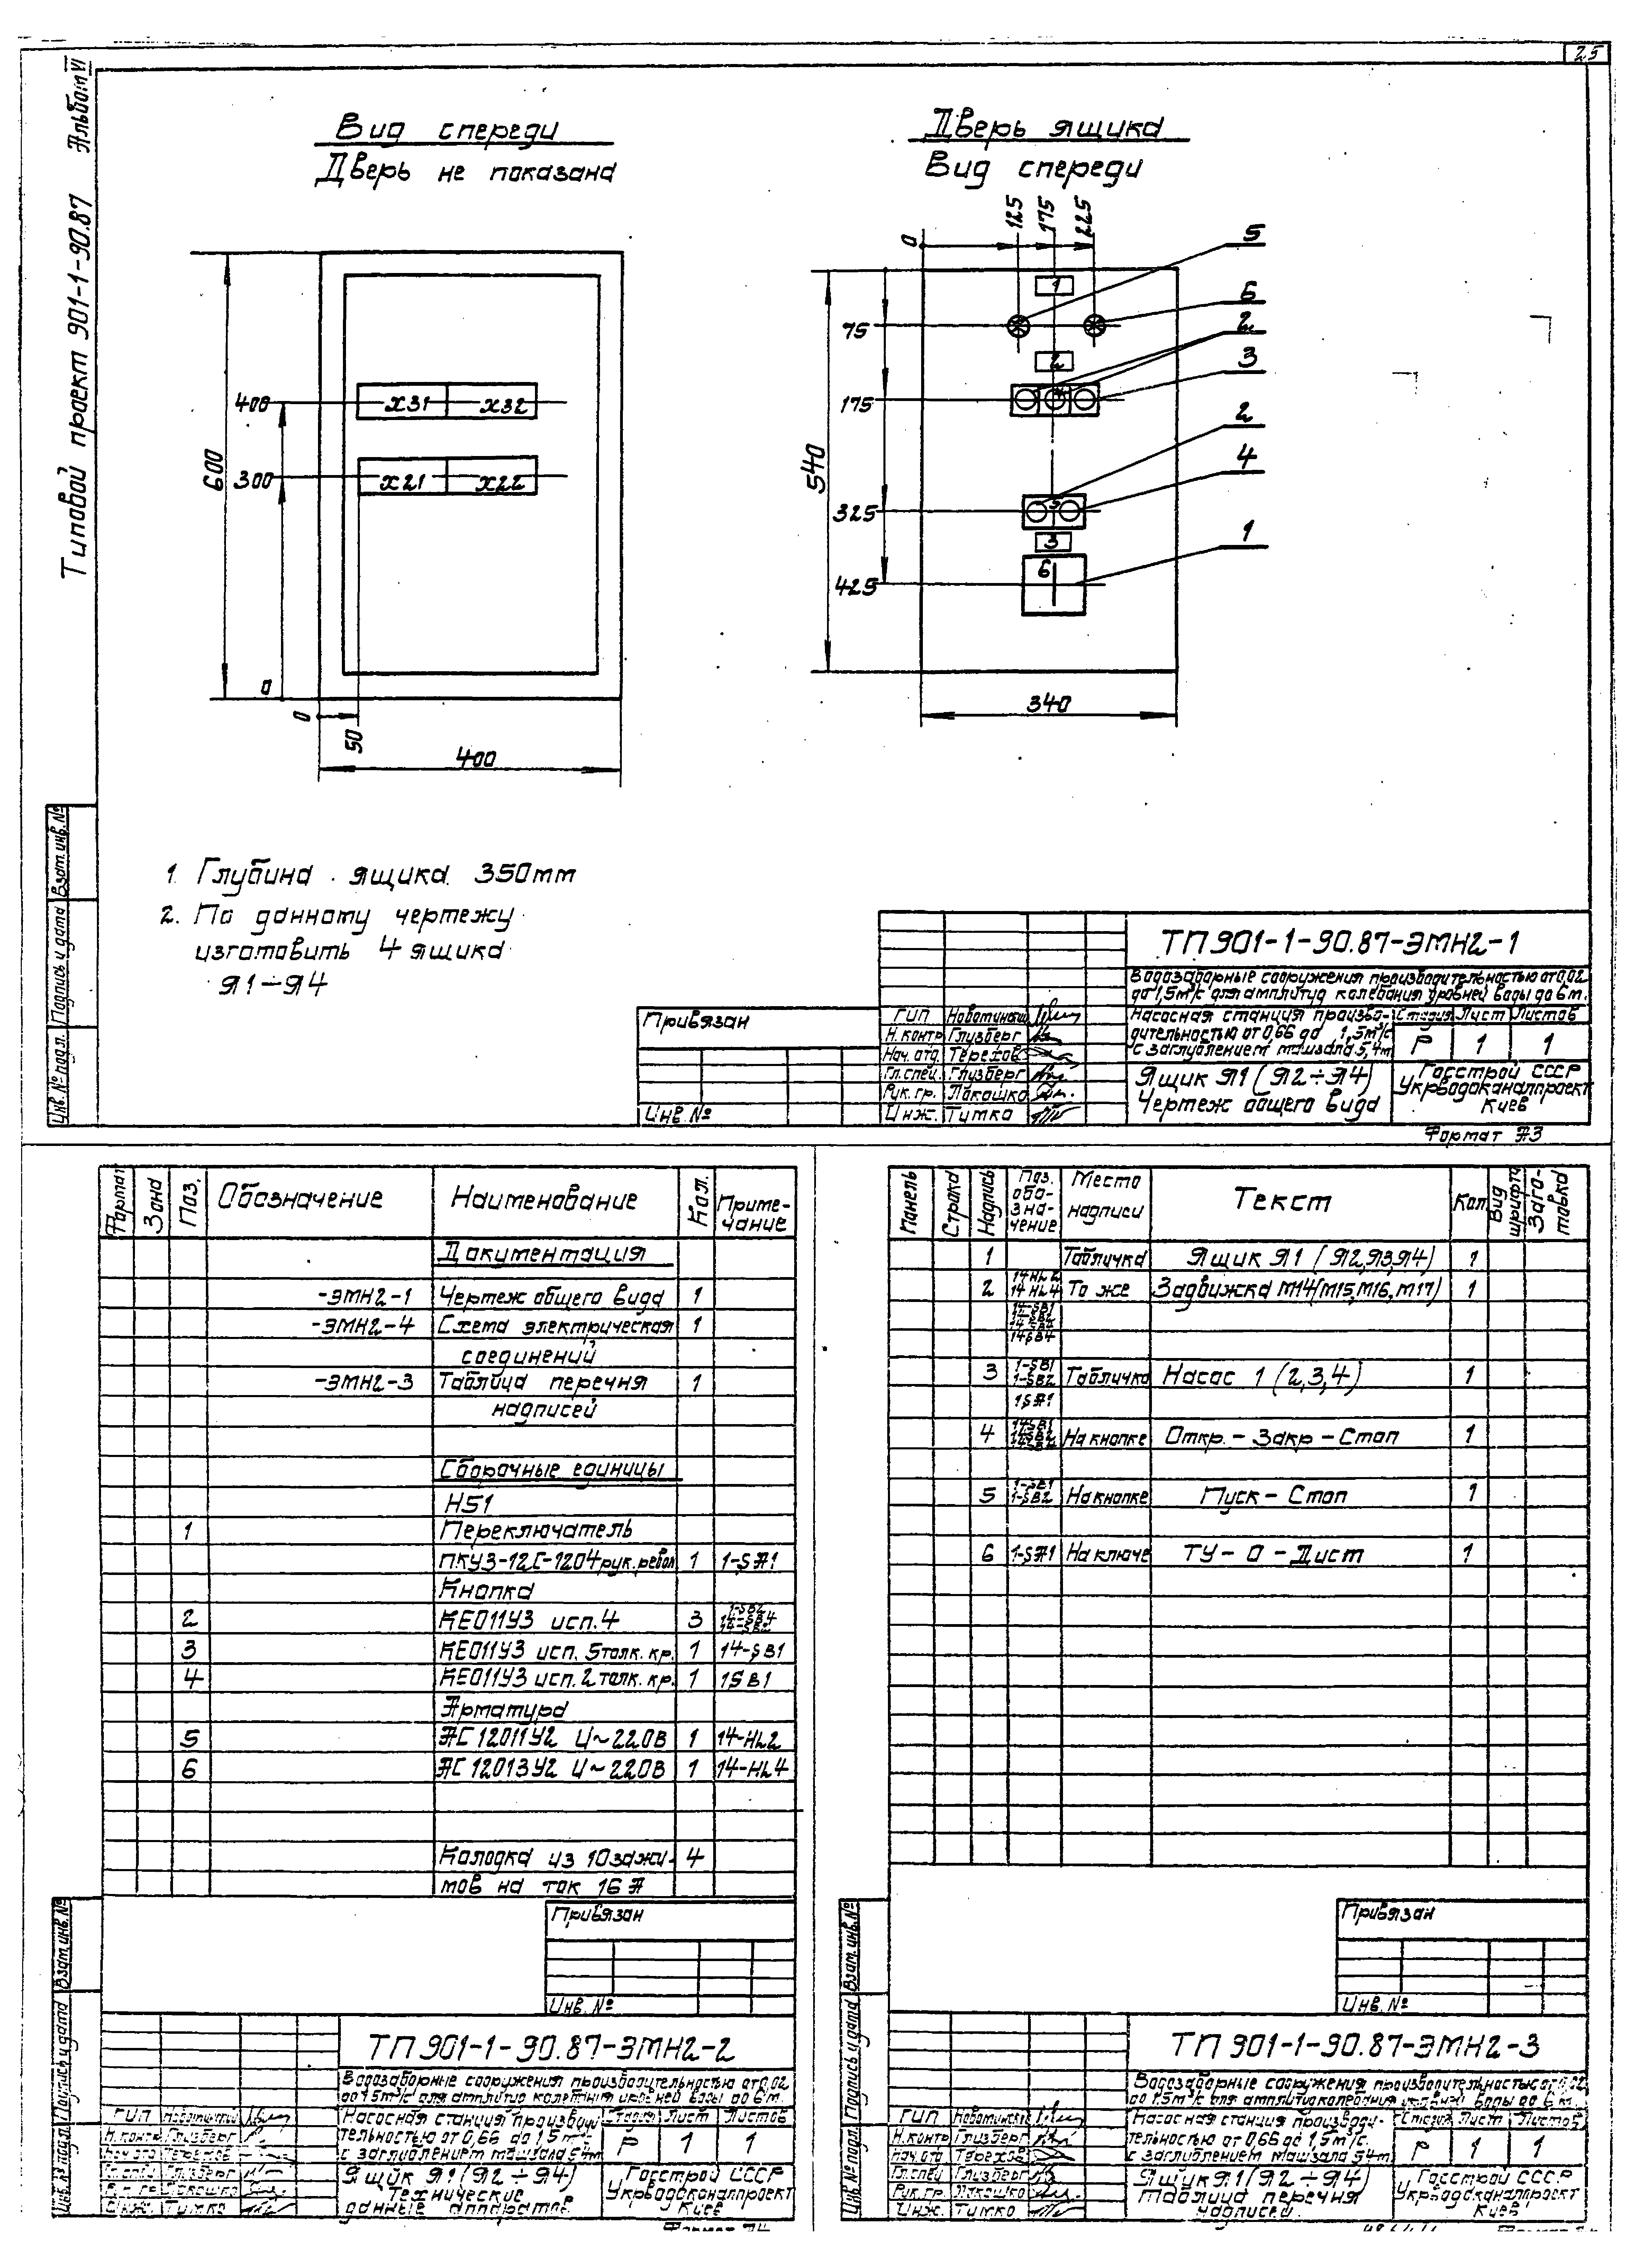 25
Альбом VI
Типовой проект 901-1-90.87
Вид спереди
Дверь не показана
600
400
300
0
X31 X32
X21 X22
0
50
400
Дверь ящика
Вид спереди
0 125 175 225
75
175
325
425
540
340
1
2
4
5
3
6
5
6
2
3
2
4
1
1. Глубина ящика 350мм
2. По данному чертежу
изготовить 4 ящика
Я1÷Я4
Взам. инв. №
Подпись и дата
Инв. № подл.
Привязан
Инв. №
ТП 901-1-90.87-ЭМН2-1
Водозаборные сооружения производительностью от 0,02
до 1,5м³/с для амплитуд колебания уровней воды до 6м.
ГИП
Н. контр Глизберг
Нач. отд. Терехов
Гл. спец. Глизберг
Рук. гр. Лакошко
Инж. Титко
Насосная станция произво-
дительностью от 0,66 до 1,5м³/с
с заглублением машзала 5,4м
Стадия Лист Листов
Р 1 1
Ящик Я1 (Я2÷Я4)
Чертеж общего вида
Госстрой СССР
Укрводоканалпроект
Киев
Формат А3
Формат Зона Поз. Обозначение Наименование Кол. Приме-
чание
Документация
-ЭМН2-1 Чертеж общего вида 1
-ЭМН2-4 Схема электрическая 1
соединений
-ЭМН2-3 Таблица перечня 1
надписей
Сборочные единицы
Н51
1 Переключатель
ПКУ3-12С-1204 рук. револ 1 1-SA1
Кнопка
2 КЕ011У3 исп. 4 3
3 КЕ011У3 исп. 5 толк. кр. 1 14-SB1
4 КЕ011У3 исп. 2 толк. кр. 1 1SB1
Арматура
5 АС12011У2 U~220В 1 14-HL2
6 АС12013У2 U~220В 1 14-HL4
Колодка из 10 зажи- 4
мов на ток 16А
Взам. инв. №
Подпись и дата
Привязан
Инв. №
ТП 901-1-90.87-ЭМН2-2
Водозаборные сооружения производительностью от 0,02
до 1,5м³/с для амплитуд колебания уровней воды до 6м.
ГИП
Н. контр Глизберг
Нач. отд. Терехов
Гл. спец. Глизберг
Рук. гр. Лакошко
Инж. Титко
Насосная станция производи
тельностью от 0,66 до 1,5м³/с
с заглублением машзала 5,4м
Стадия Лист Листов
Р 1 1
Ящик Я1 (Я2÷Я4)
Технические
данные аппаратов
Госстрой СССР
Укрводоканалпроект
Киев
Формат А4
Панель Строка Надпись Поз. обо-зна-чение Место надписи Текст Кол. Вид шрифта Заго-товка
1 Табличка Ящик Я1 (Я2,Я3,Я4) 1
2 14HL2 14HL4 То же Задвижка М14(М15,М16,М17) 1
14SB4
3 1-SB1 1-SB2 Табличка Насос 1 (2,3,4) 1
1SA1
4 На кнопке Откр. - Закр - Стоп 1
5 1-SB1 1-SB2 На кнопке Пуск - Стоп 1
6 1-SA1 На ключе ТУ - О - Дист 1
Взам. инв. №
Подпись и дата
Инв. № подл.
Привязан
Инв. №
ТП 901-1-90.87-ЭМН2-3
Водозаборные сооружения производительностью от 0,02
до 1,5м³/с для амплитуд колебания уровней воды до 6м.
ГИП
Н. контр Глизберг
Нач. отд Терехов
Гл. спец Глизберг
Рук. гр. Лакошко
Инж. Титко
Насосная станция производи-
тельностью от 0,66 до 1,5м³/с.
с заглублением машзала 5,4м
Стадия Лист Листов
Р 1 1
Ящик Я1 (Я2÷Я4)
Таблица перечня
надписей.
Госстрой СССР
Укрводоканалпроект
Киев